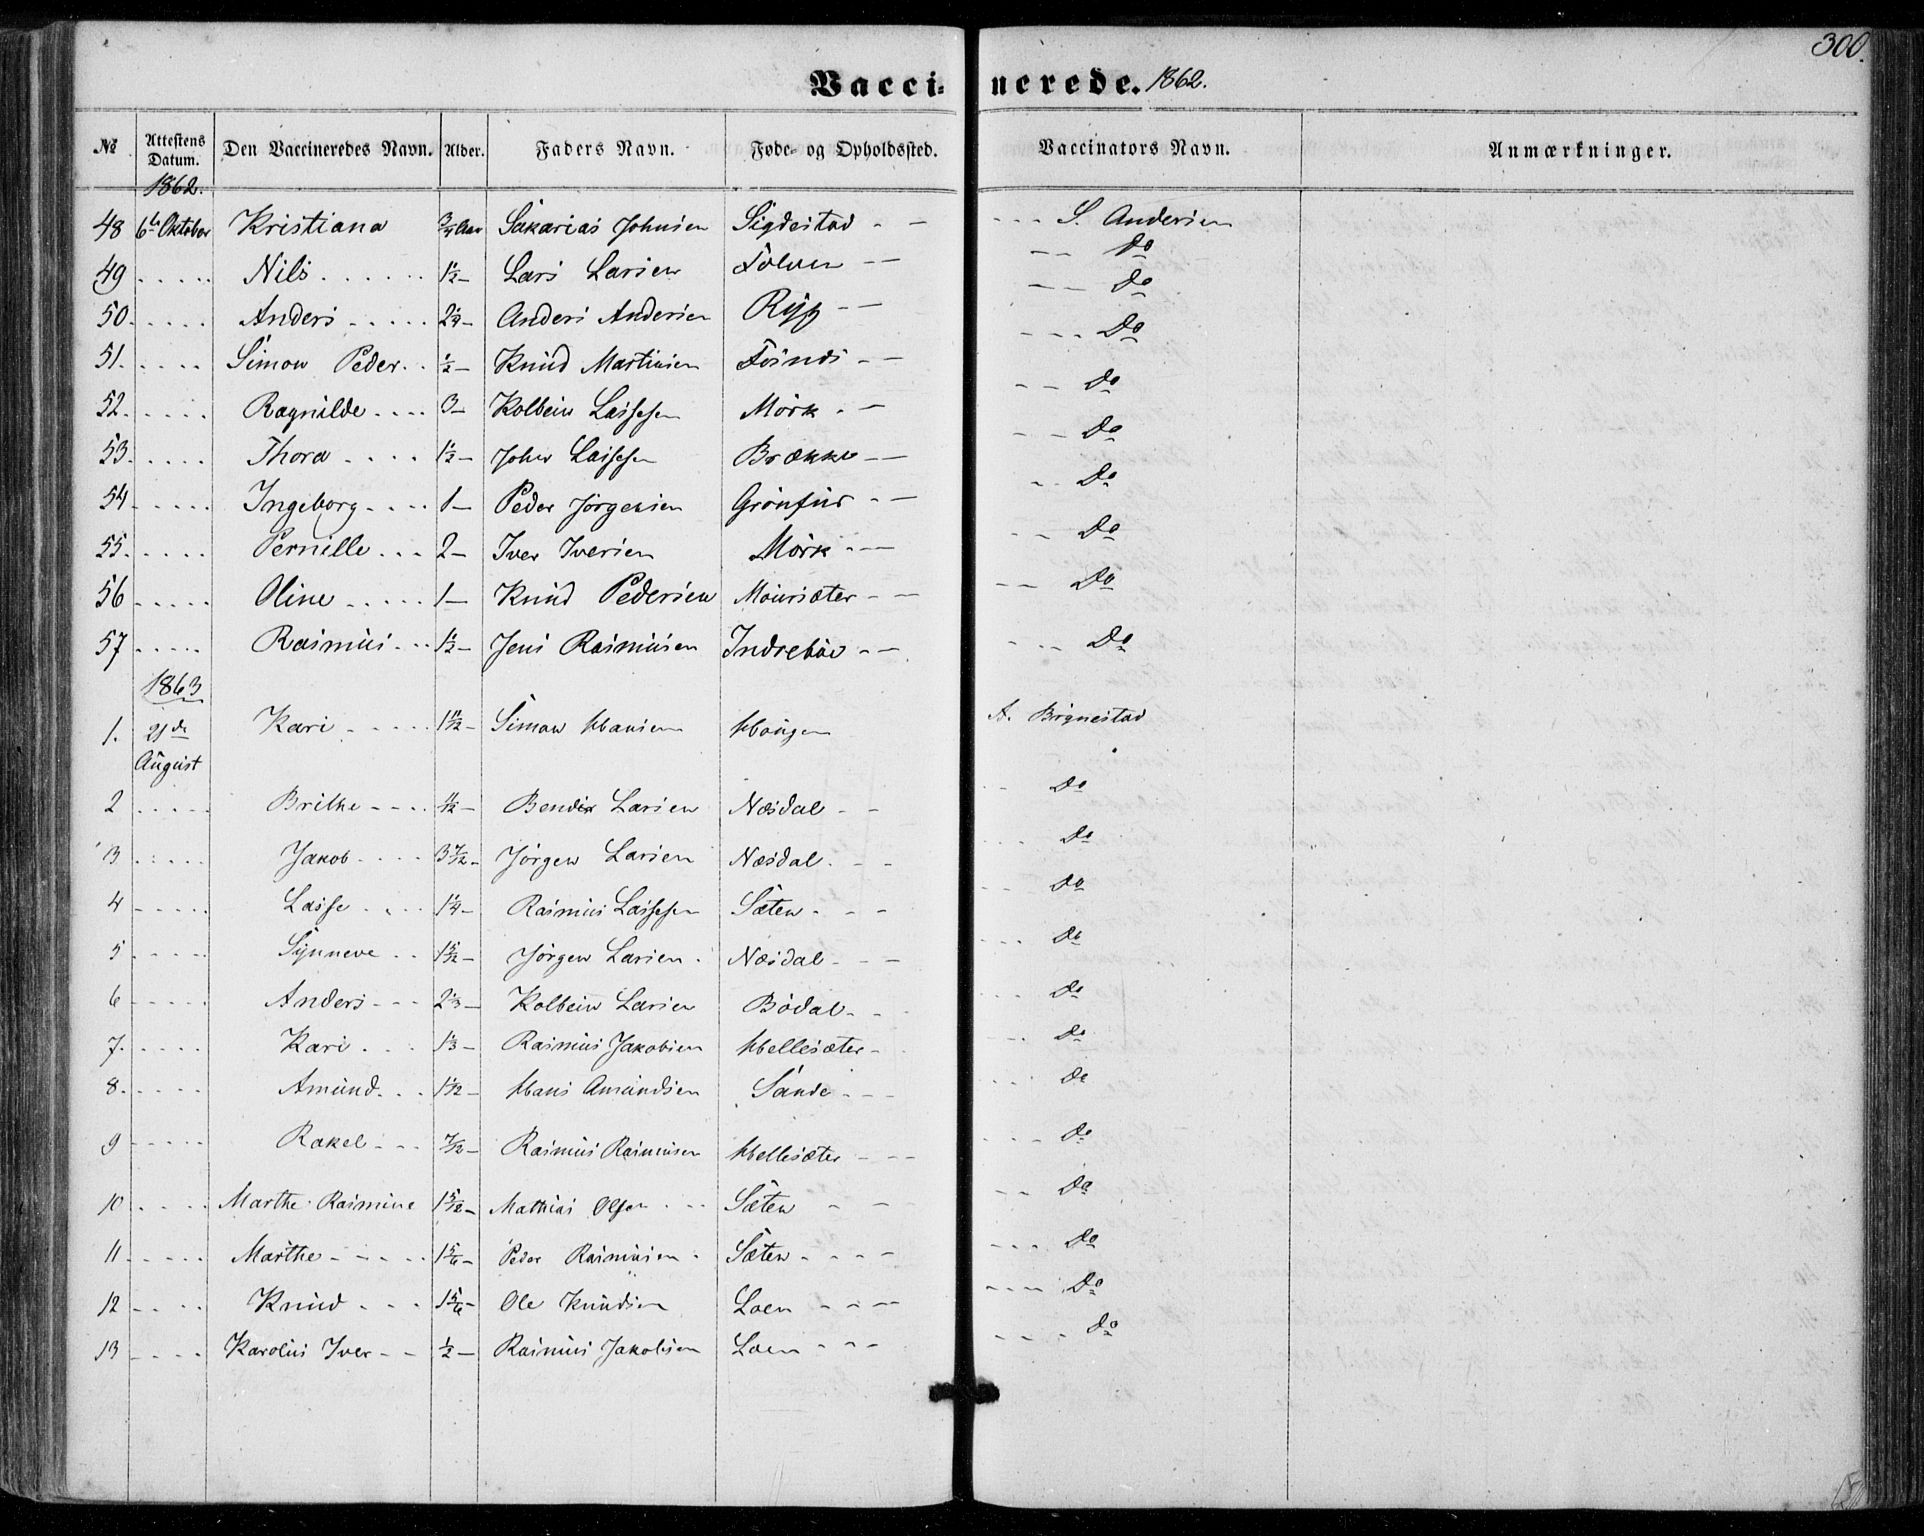 300.
Vaccinerede. 1862.
№ Attestens Datum. Den Vaccineredes Navn. Alder. Faders Navn. Føde- og Opholdssted. Vaccinators Navn. Anmærkninger.
1862.
48 6te Oktober Kristiana 3/4 Aar Sakarias Johnsen Sigdestad - - - - - S. Andersen
49 - - - - - Nils - - - - - 1 1/2 - Lars Larsen Tolven - - - - Do
50. - - - - Anders - - - - - 2 1/4 - Anders Andersen Ryg - - - - Do
51. - - - - Simon Peder - - 1/2 - Knud Martinsen - - - - - Do
52. - - - - Ragnilde - - - - 3 - Kolbein Lassesen Mörk - - - - Do
53. - - - - Thora - - - - 1 1/2 - John Lassesen Brække - - - - Do
54 - - - - - Ingeborg - - - - 1 - Peder Jörgensen Grönfur - - - - Do
55. - - - - Pernille - - - 2 - Iver Iversen Mörk - - - - - Do
56 - - - - - Oline - - - - - 1 - Knud Pedersen Moursæter - - - - Do
57 - - - - - Rasmus - - 1 1/2 - Jens Rasmusen Indrebøe - - - - - Do
1863
1. 21de August Kari - - - - 1 11/12 - Simon Hansen Haugen A. Brynestad
2 - - - - - Brithe - - - - 11/12 - Bendix Larsen Næsdal - - - - Do
3 - - - - - Jakob - - - - 3 7/12 - Jörgen Larsen Næsdal - - - - - Do
4 - - - - - Lasse - - - - 1 1/4 - Rasmus Lassesen Sæten - - - - - Do
5 - - - - - Synneve - - 1 5/12 - Jörgen Larsen - Næsdal - - - - - - Do
6 - - - - - Anders - - - 2 1/3 - Kolbein Larsen Bödal - - - - - Do
7. - - - - Kari - - - 1 1/3 - Rasmus Jakobsen Hellesæter - - - - Do
8. - - - - Amund - - - 1 1/12 - Hans Amundsen Sande - - - - - - Do
9 - - - - - Rakel - - - 7/12 - Rasmus Rasmusen Hellesæter - - - - - - Do
10 - - - - Marthe Rasmine 1 5/12 - Mathias Olsen - - - Sæten - - - - Do
11 - - - - - Marthe - - - - - 1 5/6 - Peder Rasmusen - Sæten - - - - - - - Do
12 - - - - Knud - - - 1 5/6 - Ole Knudsen Loen - - - - - - - Do
13 - - - - Karolus Iver - - 1/2 - Rasmus Jakobsen Loen - - - - - - - Do